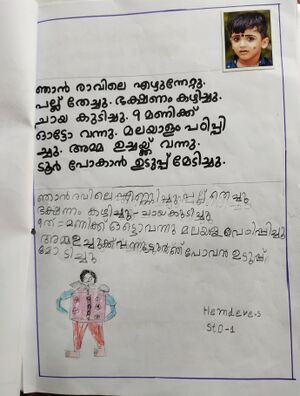 ഞാൻ രാവിലെ എഴുന്നേറ്റു.
പല്ല് തേച്ചു. ഭക്ഷണം കഴിച്ചു.
ചായ കുടിച്ചു. 9 മണിക്ക്
ഓട്ടോ വന്നു. മലയാളം പഠിപ്പി
ച്ചു. അമ്മ ഉച്ചയ്ക്ക് വന്നു.
ടൂർ പോകാൻ ഉടുപ്പ് മേടിച്ചു.
ഞാൻ പല്ല് തെച്ചു
ഭക്ഷനം കഴിച്ചു ചായ കുടിച്ചു
മണിക്ക് ഓട്ടൊ വന്നു മലയള
അമ്മ പോവൻ ഉടുപ്പ്
മേടിച്ചു
Hemdev.s
STD-1